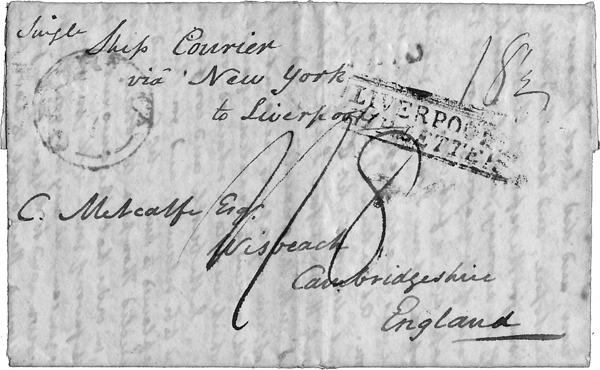 Single
Ship Courier
viâ New York
to Liverpool
18½
LIVERPOOL
LETTER
1/8
C. Metcalfe Esq.
Wisbeach
Cambridgeshire
England